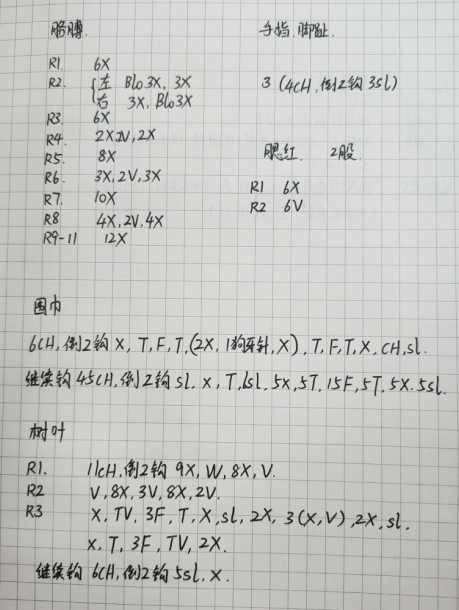 胳膊.
R1. 6X
R2. 左 Blo3X, 3X
右 3X, Blo3X
R3. 6X
R4. 2X2V, 2X
R5. 8X
R6. 3X, 2V, 3X
R7. 10X
R8 4X, 2V, 4X
R9-11 12X
手指.脚趾.
3 (4CH, 倒2钩 3sl)
腮红. 2股.
R1 6X
R2 6V
围巾
6CH, 倒2钩 X, T, F, T, (2X, 1狗牙针, X), T, F, T, X, CH, sl.
继续钩 45CH, 倒2钩 sl, X, T, 6sl, 5X, 5T, 15F, 5T, 5X, 5sl.
树叶
R1. 11CH, 倒2钩 9X, W, 8X, V.
R2 V, 8X, 3V, 8X, 2V.
R3 X, TV, 3F, T, X, sl, 2X, 3(X, V), 2X, sl,
X, T, 3F, TV, 2X.
继续钩 6CH, 倒2钩 5sl, X.